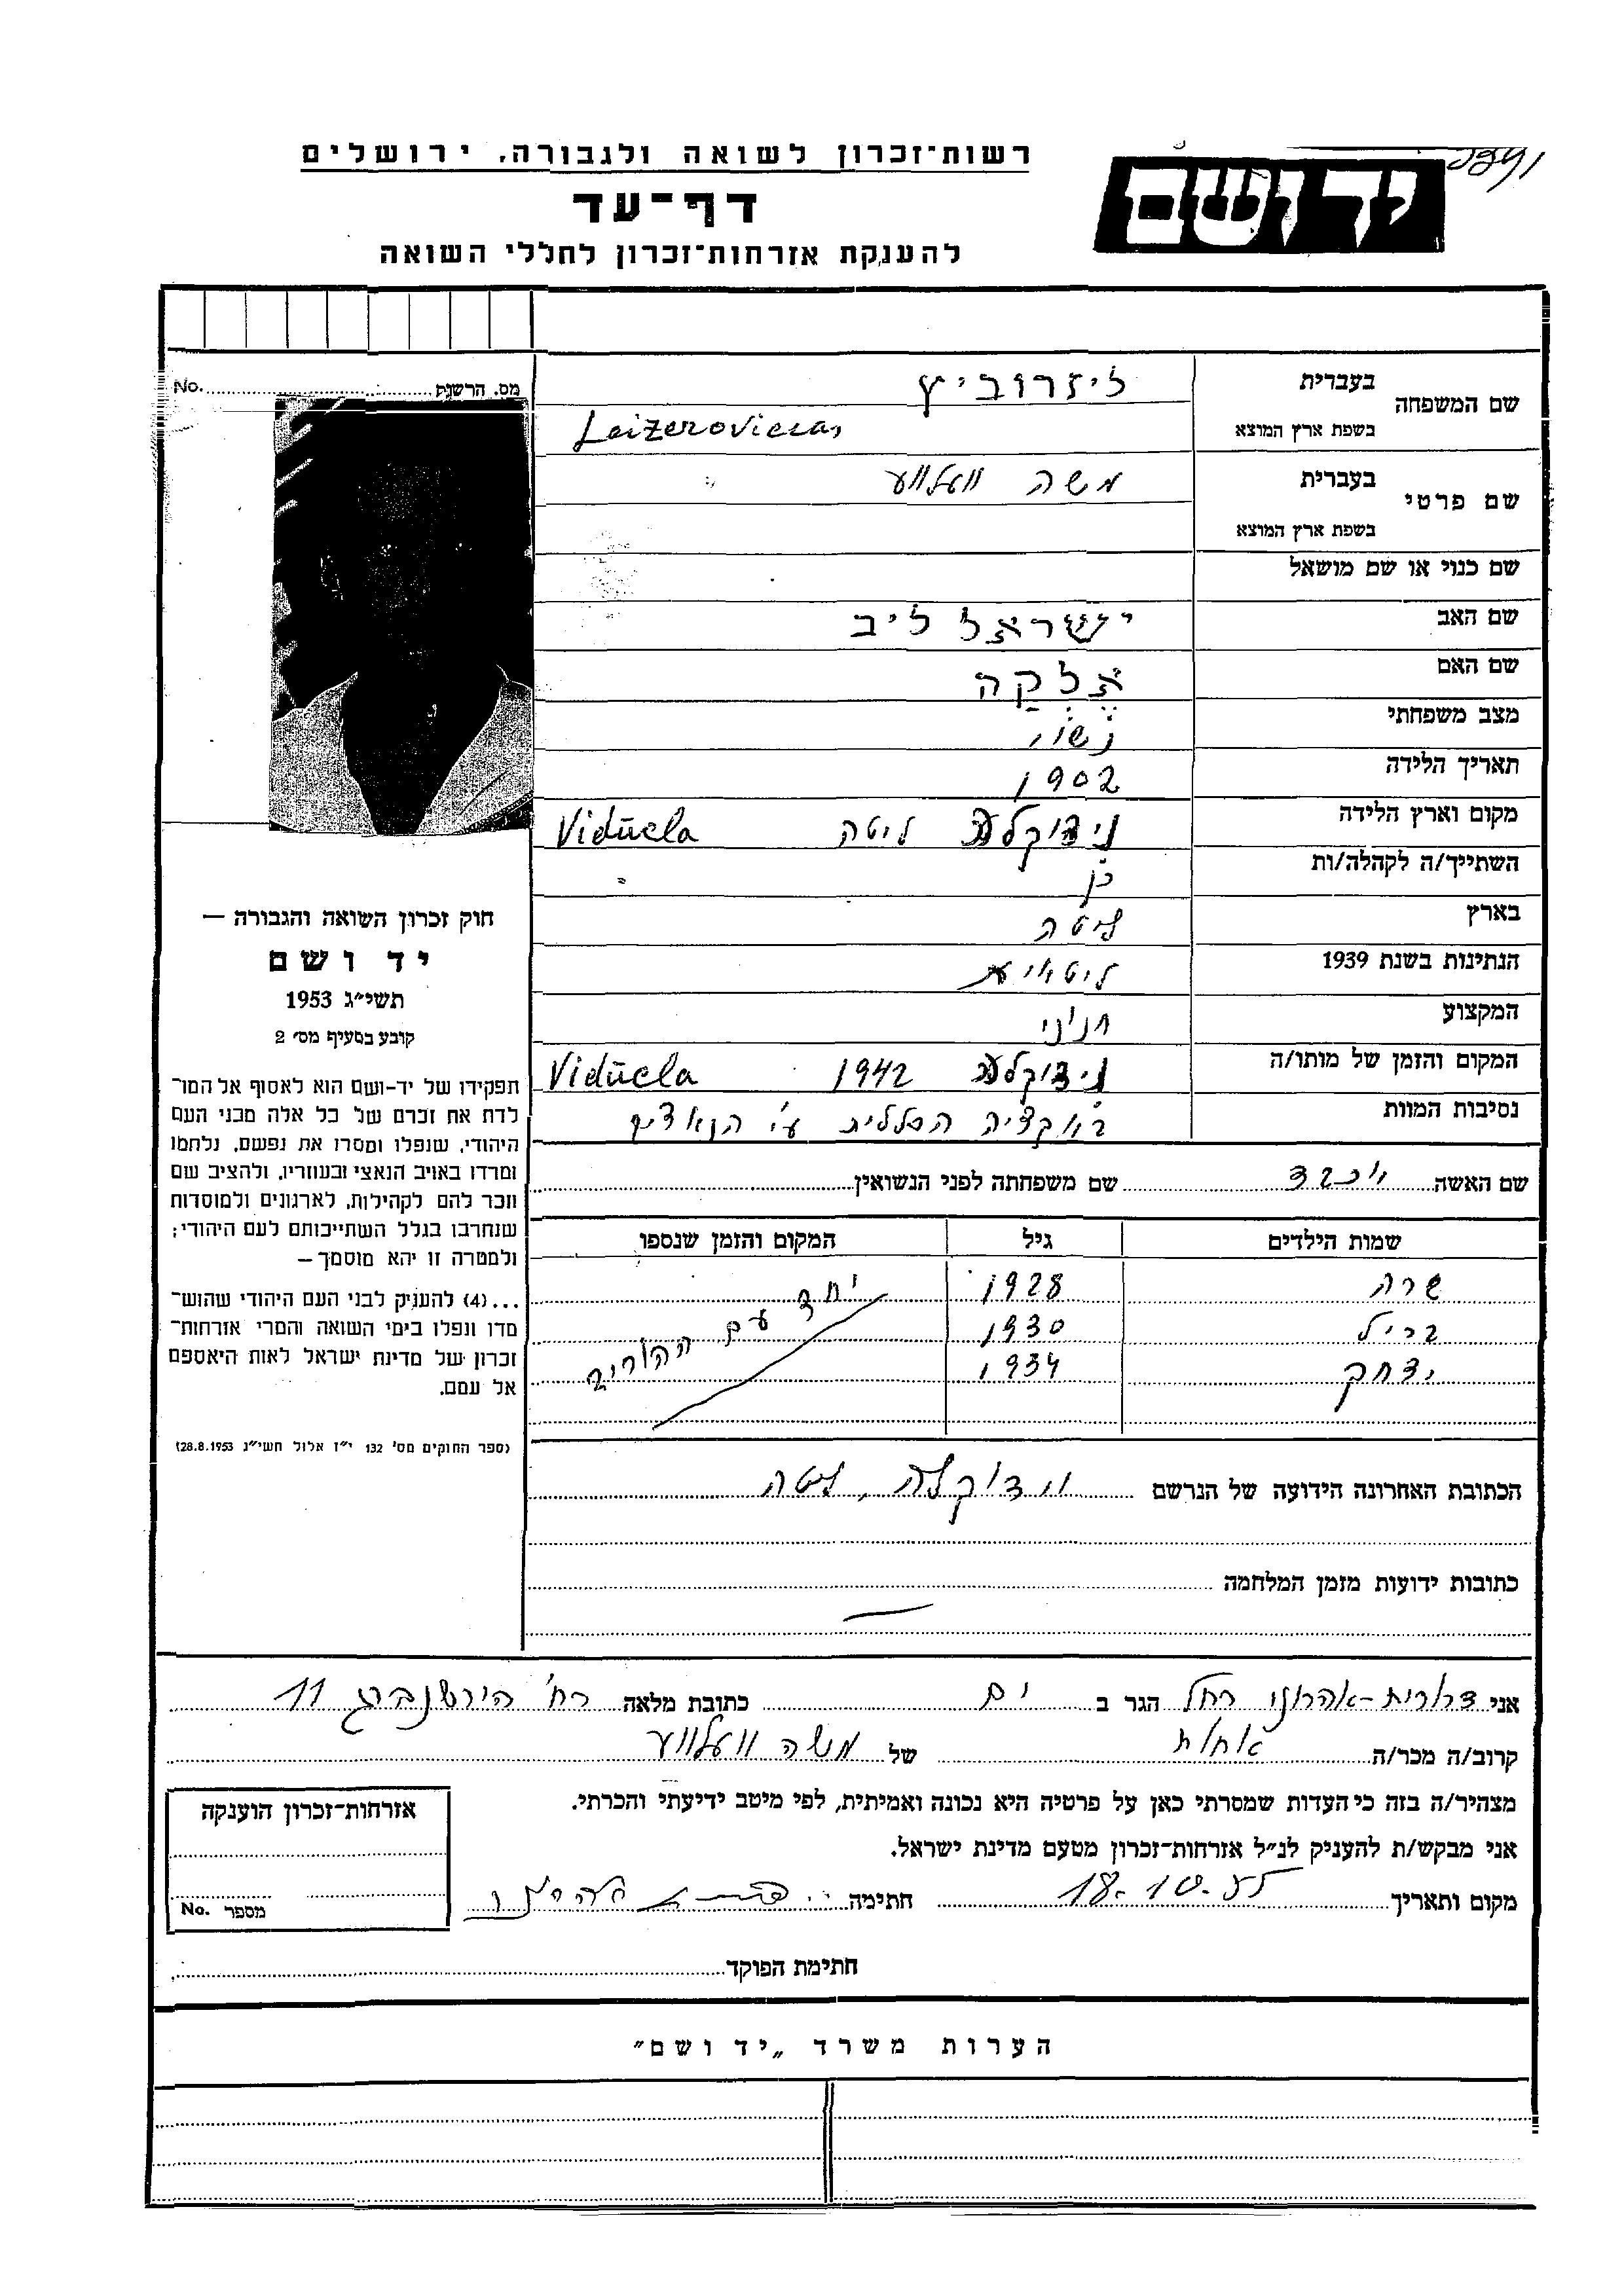 רשות־זכרון לשואה ולגבורה, ירושלים
דף־עד
להענקת אזרחות־זכרון לחללי השואה
יד ושם
מס. הרשום No.
שם המשפחה
בעברית ליזרוביץ
בשפת ארץ המוצא Leizerovicas
שם פרטי
בעברית משה וועלווע
בשפת ארץ המוצא
שם כנוי או שם מושאל
שם האב ישראל ליב
שם האם אלקה
מצב משפחתי נשוי
תאריך הלידה 1902
מקום וארץ הלידה וידוקלע ליטה Vidūcla
השתייך/ה לקהלה/ות כן
בארץ ליטה
הנתינות בשנת 1939 ליטאית
המקצוע חנוני
המקום והזמן של מותו/ה וידוקלע 1942 Vidūcla
נסיבות המוות באקציה הכללית ע״י הנאצים
שם האשה שם משפחתה לפני הנשואין
שמות הילדים גיל המקום והזמן שנספו
שרה 1928 יחד עם ההורים
1930
יצחק 1934
הכתובת האחרונה הידועה של הנרשם וידוקלה, ליטה
כתובות ידועות מזמן המלחמה
אני דרורית-אהרונו רחל הגר ב ים כתובת מלאה רח' הירשנברג 11
קרוב/ה מכר/ה אחות של משה וועלווע
מצהיר/ה בזה כי העדות שמסרתי כאן על פרטיה היא נכונה ואמיתית, לפי מיטב ידיעתי והכרתי.
אני מבקש/ת להעניק לנ״ל אזרחות־זכרון מטעם מדינת ישראל.
מקום ותאריך 18.10.55 חתימה
חתימת הפוקד
אזרחות־זכרון הוענקה
מספר No.
חוק זכרון השואה והגבורה —
יד ושם
תשי״ג 1953
קובע בסעיף מס׳ 2
תפקידו של יד-ושם הוא לאסוף אל המו־
לדת את זכרם של כל אלה מבני העם
היהודי, שנפלו ומסרו את נפשם, נלחמו
ומרדו באויב הנאצי ובעוזריו, ולהציב שם
וזכר להם לקהילות, לארגונים ולמוסדות
שנחרבו בגלל השתייכותם לעם היהודי;
ולמטרה זו יהא מוסמך —
...(4) להעניק לבני העם היהודי שהוש־
מדו ונפלו בימי השואה והמרי אזרחות־
זכרון של מדינת ישראל לאות היאספם
אל עמם.
(ספר החוקים מס׳ 132 י״ז אלול תשי״ג 28.8.1953)
הערות משרד „יד ושם״